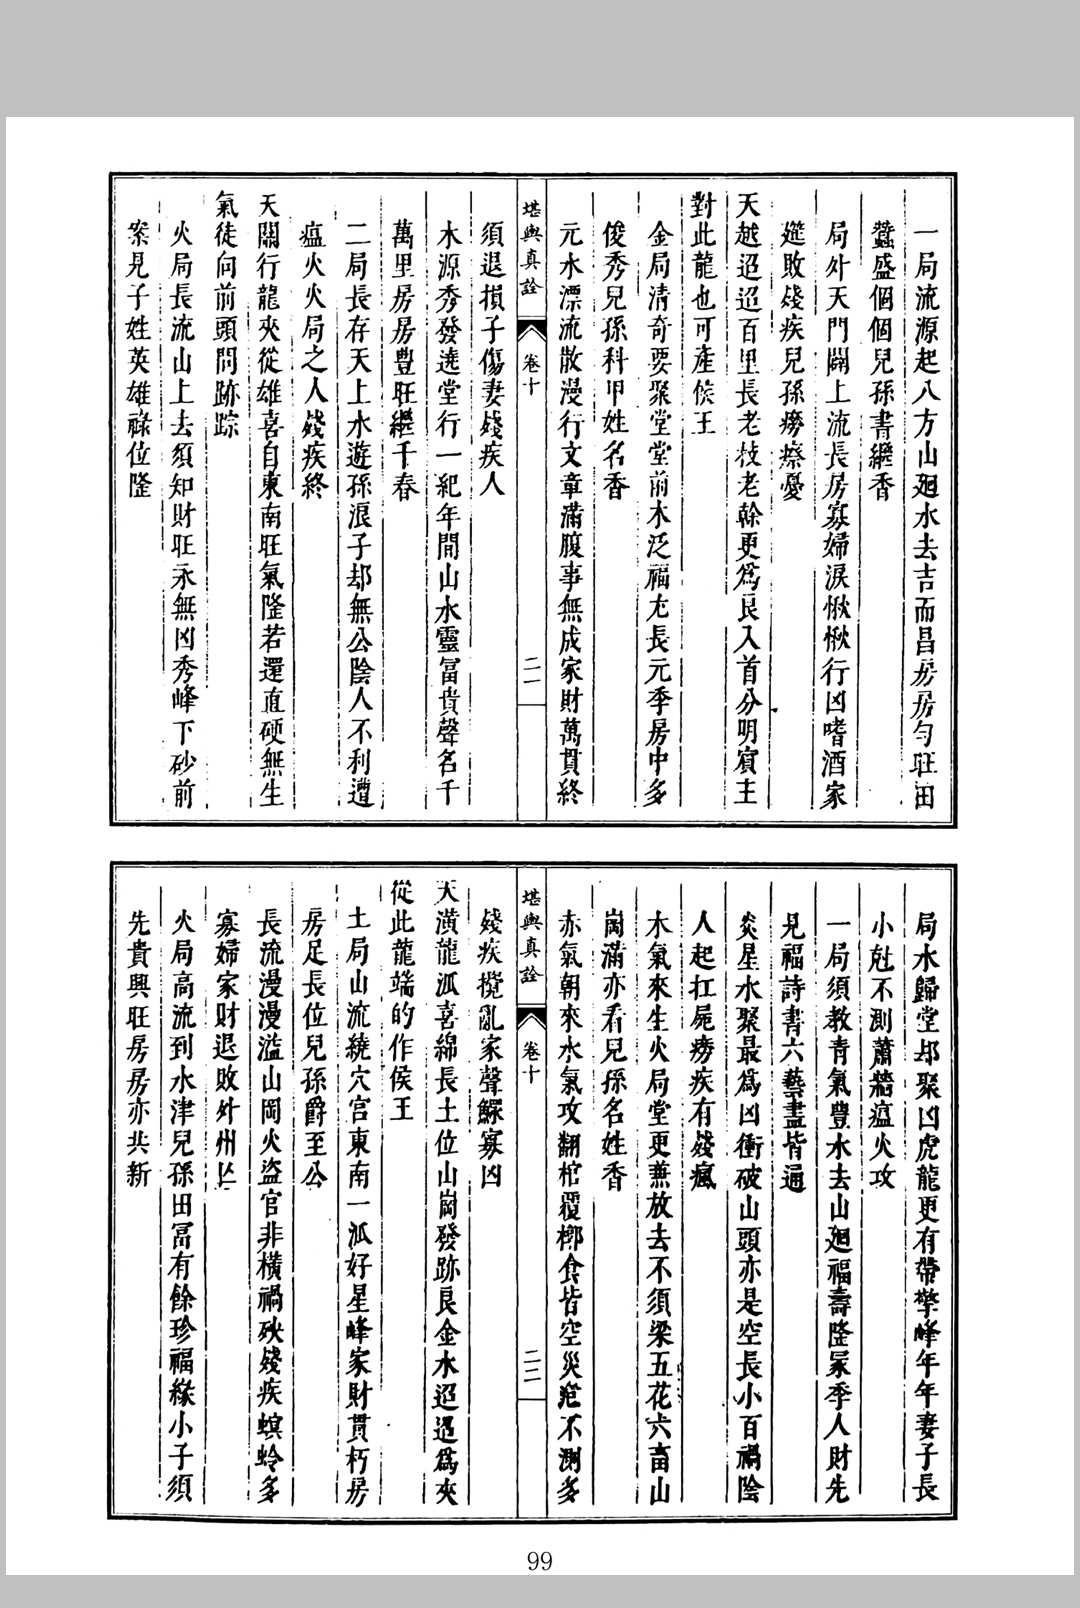 一局流源起八方山廻水去吉而昌房房勻旺田
蠶盛個個兒孫書繼香
局外天門闢上流長房寡婦淚愀愀行凶嗜酒家
筵敗殘疾兒孫癆瘵憂
天越迢迢百里長老枝老榦更為良入首分明賓主
對此龍也可產侯王
金局清奇要聚堂堂前木泛福尤長元季房中多
俊秀兒孫科甲姓名香
元水漂流散漫行文章滿腹事無成家財萬貫終
堪輿真詮
卷十
二一
須退損子傷妻殘疾人
木源秀發遶堂行一紀年間山水靈冨貴聲名千
萬里房房豊旺繼千春
二局長存天上水遊孫浪子却無公陰人不利遭
瘟火火局之人殘疾終
天關行龍夾從雄喜自東南旺氣隆若還直硬無生
氣徒向前頭問跡踪
火局長流山上去須知財旺永無凶秀峰下砂前
案見子姓英雄祿位隆
局水歸堂却聚凶虎龍更有帶拏峰年年妻子長
小尅不測蕭牆瘟火攻
一局須教青氣豊水去山廻福壽隆冢季人財先
見福詩書六藝盡皆通
炎星水聚最為凶衝破山頭亦是空長小百禍陰
人起扛屍癆疾有殘瘋
木氣來生火局堂更兼放去不須梁五花六畜山
崗滿亦看兒孫名姓香
赤氣朝來水氣攻翻棺覆槨食皆空災疤不測多
堪輿真詮
卷十
二二
殘疾攪亂家聲鰥寡凶
天潢龍派喜綿長土位山崗發跡良金水迢迢為夾
從此龍端的作侯王
土局山流繞穴宮東南一派好星峰家財貫朽房
房足長位兒孫爵至公
長流漫漫滥山岡火盜官非橫禍殃殘疾螟蛉多
寡婦家財退敗外州亡
火局高流到水津兒孫田冨有餘珍福緣小子須
先貴興旺房房亦共新
99